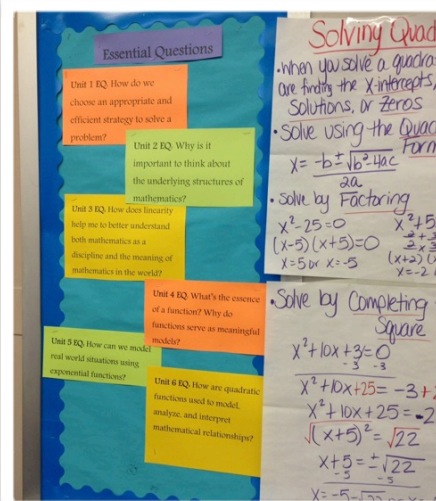 Essential Questions
Unit 1 EQ. How do we
choose an appropriate and
efficient strategy to solve a
problem?
Unit 2 EQ. Why is it
important to think about
the underlying structures of
mathematics?
Unit 3 EQ. How does linearity
help me to better understand
both mathematics as a
discipline and the meaning of
mathematics in the world?
Unit 4 EQ. What's the essence
of a function? Why do
functions serve as meaningful
models?
Unit 5 EQ. How can we model
real world situations using
exponential functions?
Unit 6 EQ. How are quadratic
functions used to model,
analyze, and interpret
mathematical relationships?
Solving Quad
•When you solve a quadra
are finding the X-intercepts,
Solutions, or Zeros
•Solve using the Quad
Form
X= -b±√b²-4ac
2a
•Solve by Factoring
x²-25=0
(x-5)(x+5)=0
x=5 or x=-5
x²+5
(x+2)(
x=-2
•Solve by Completing
Square
x²+10x+3=0
-3 -3
x²+10x+25=-3+2
x²+10x+25=
√(x+5)²=√22
x+5=±√22
-5 -5
x=-5-√22